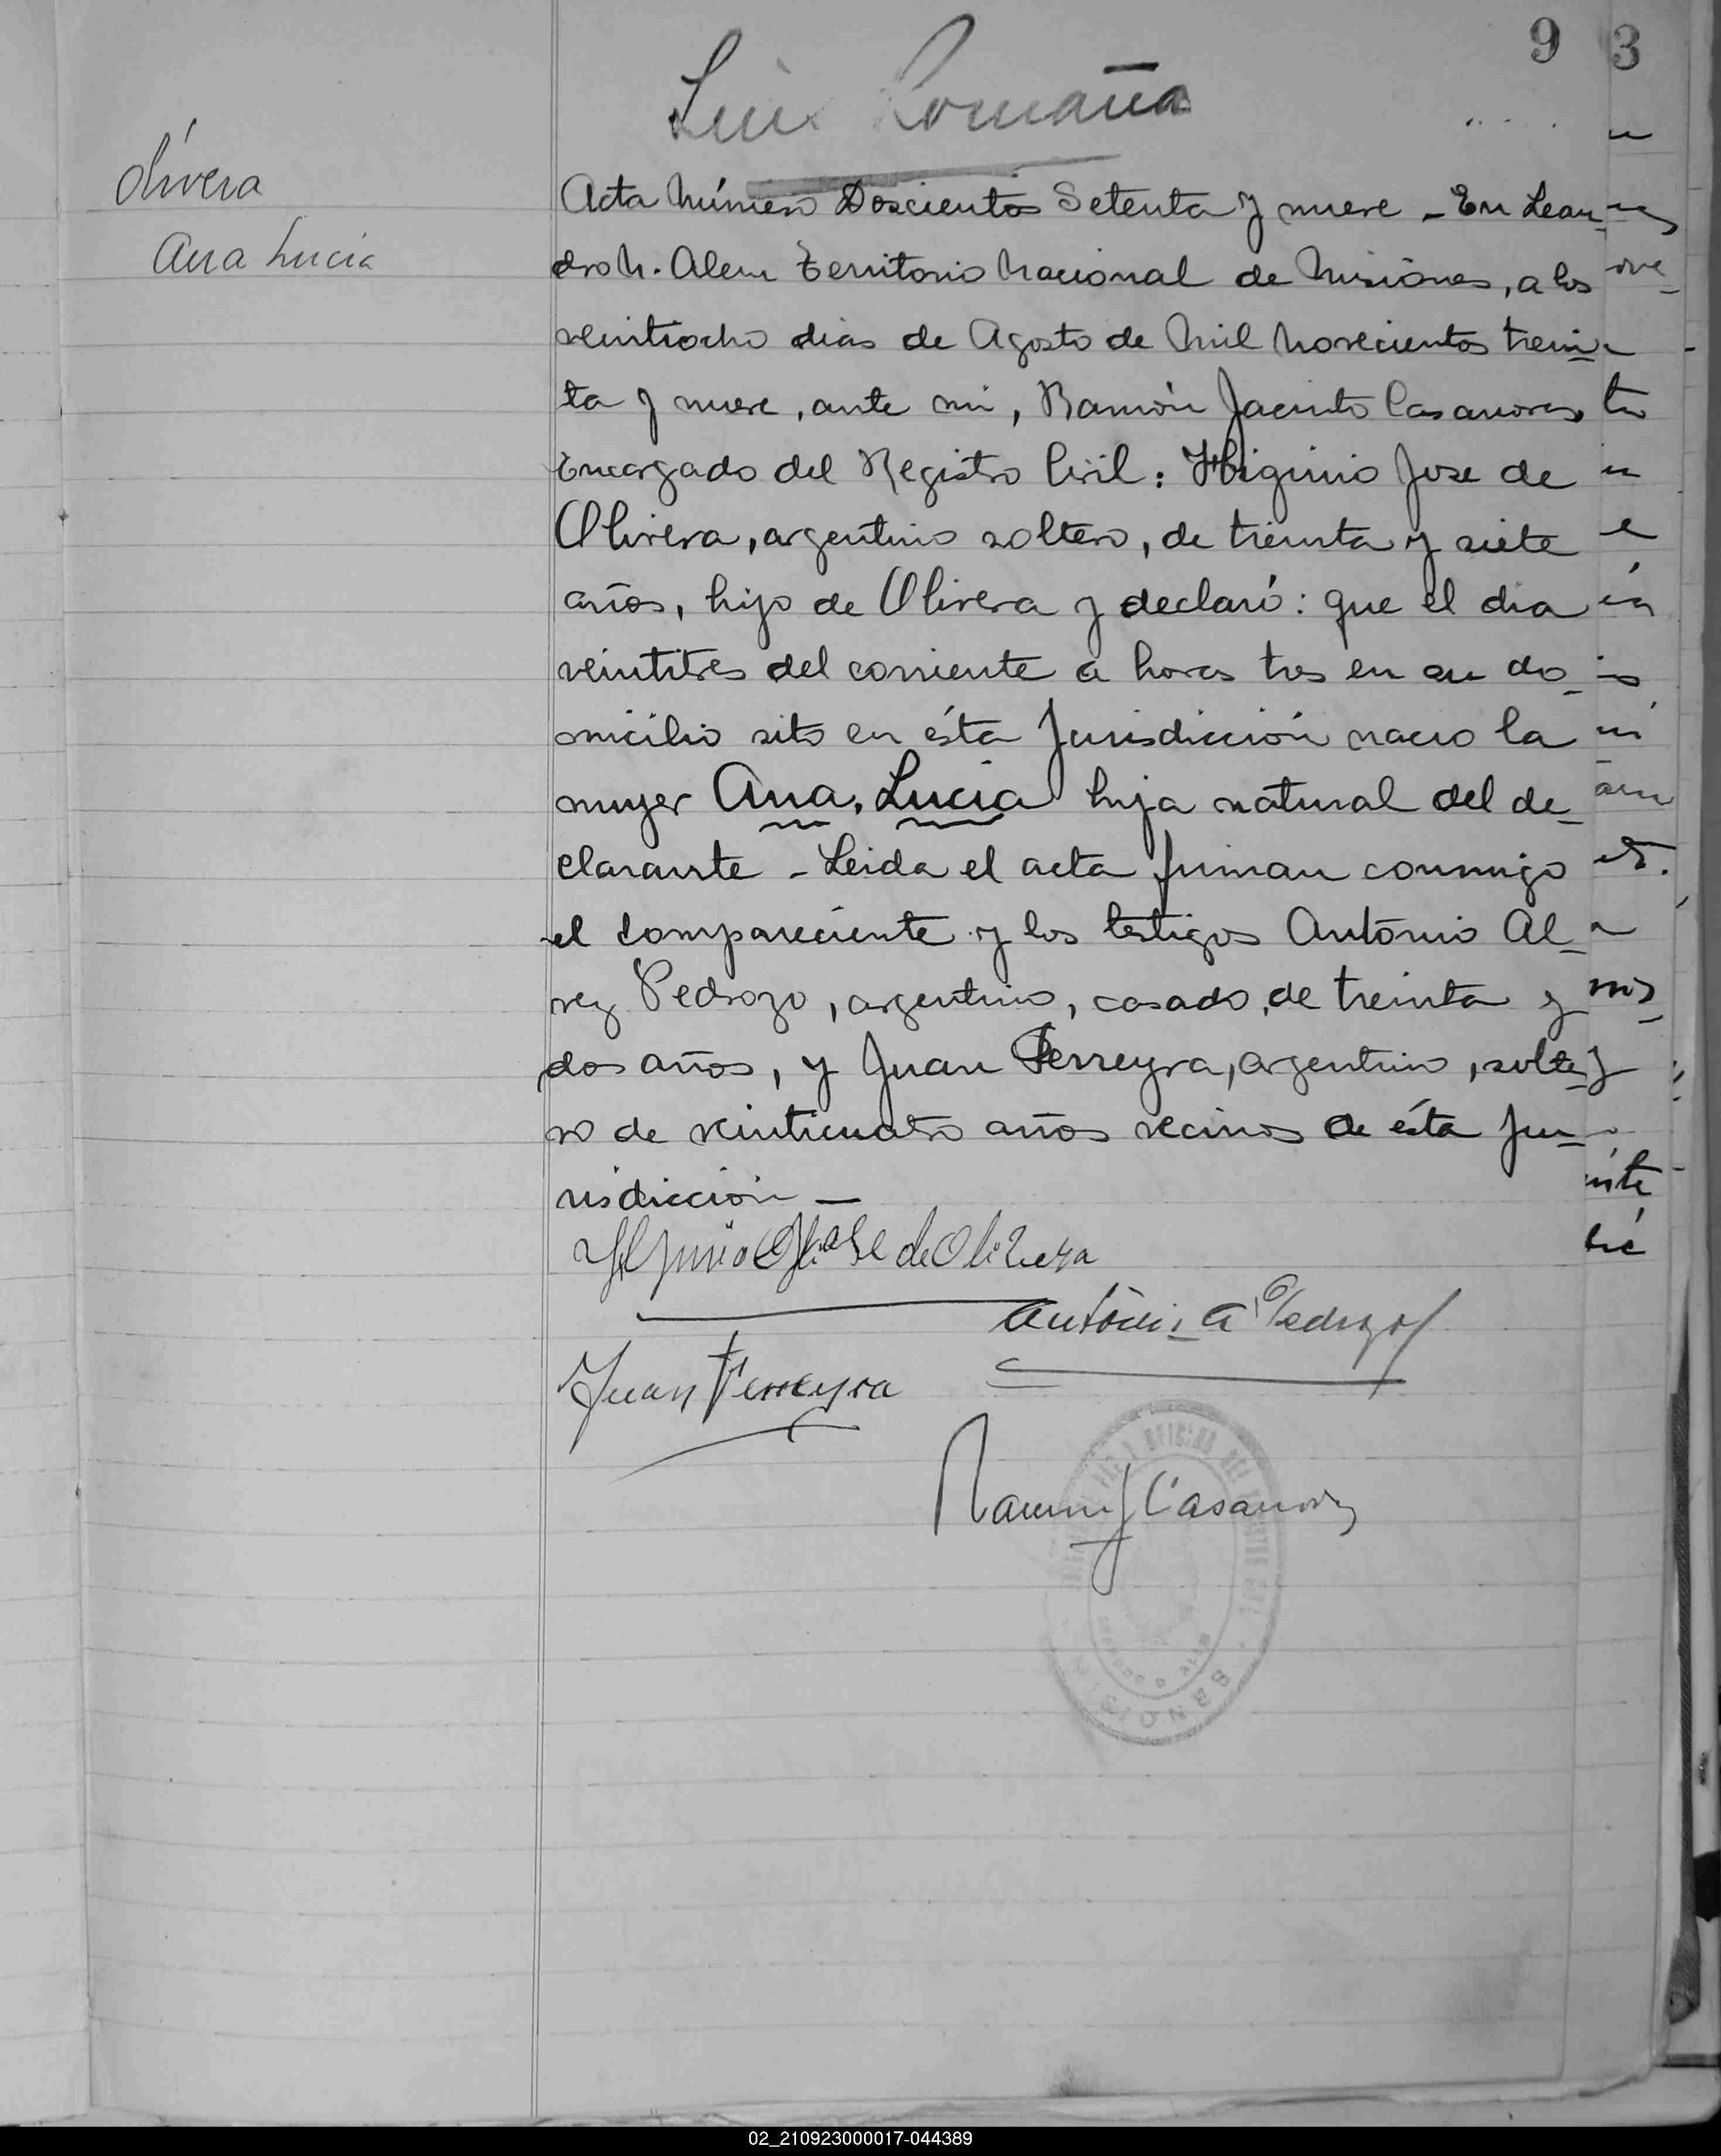 9 3
Luis Romaña
Olivera
Ana Lucia
Acta Número Doscientos Setenta y nueve - En Lean-
dro N. Alem Territorio Nacional de Misiones, a los
veintiocho dias de Agosto de Mil Novecientos trein-
ta y nueve, ante mi, Ramón Jacinto Casanova,
Encargado del Registro Civil: Higinio Jose de
Olivera, argentino soltero, de treinta y siete
años, hijo de Olivera y declaró: que el dia
veintitres del corriente a horas tres en su do-
micilio sito en ésta Jurisdicción nacio la
mujer Ana, Lucia hija natural del de-
clarante - Leida el acta firman conmigo
el compareciente y los testigos Antonio Al-
vez Pedrozo, argentino, casado, de treinta y
dos años, y Juan Ferreyra, argentino, solte-
ro de veinticuatro años vecinos de ésta Ju-
risdicción -
de Olivera
Antonio A Pedrozo
Juan Ferreyra
Ramon J Casanova
02_210923000017-044389